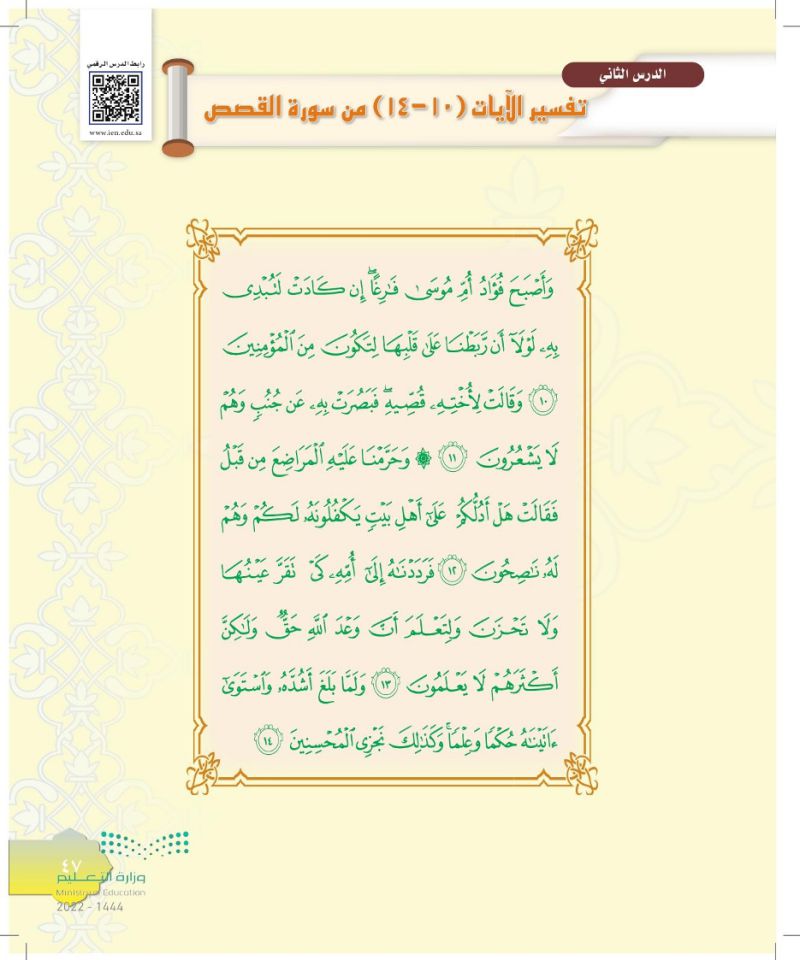 رابط الدرس الرقمي
www.ien.edu.sa
الدرس الثاني
تفسير الآيات (١٠-١٤) من سورة القصص
وَأَصْبَحَ فُؤَادُ أُمِّ مُوسَىٰ فَٰرِغًاۖ إِن كَادَتْ لَتُبْدِي
بِهِۦ لَوْلَآ أَن رَّبَطْنَا عَلَىٰ قَلْبِهَا لِتَكُونَ مِنَ ٱلْمُؤْمِنِينَ
١٠ وَقَالَتْ لِأُخْتِهِۦ قُصِّيهِۖ فَبَصُرَتْ بِهِۦ عَن جُنُبٍ وَهُمْ
لَا يَشْعُرُونَ ١١ ۞ وَحَرَّمْنَا عَلَيْهِ ٱلْمَرَاضِعَ مِن قَبْلُ
فَقَالَتْ هَلْ أَدُلُّكُمْ عَلَىٰٓ أَهْلِ بَيْتٍ يَكْفُلُونَهُۥ لَكُمْ وَهُمْ
لَهُۥ نَٰصِحُونَ ١٢ فَرَدَدْنَٰهُ إِلَىٰٓ أُمِّهِۦ كَىْ تَقَرَّ عَيْنُهَا
وَلَا تَحْزَنَ وَلِتَعْلَمَ أَنَّ وَعْدَ ٱللَّهِ حَقٌّ وَلَٰكِنَّ
أَكْثَرَهُمْ لَا يَعْلَمُونَ ١٣ وَلَمَّا بَلَغَ أَشُدَّهُۥ وَٱسْتَوَىٰٓ
ءَاتَيْنَٰهُ حُكْمًا وَعِلْمًاۚ وَكَذَٰلِكَ نَجْزِى ٱلْمُحْسِنِينَ ١٤
٤٧
وزارة التعليم
Ministry of Education
2022 - 1444